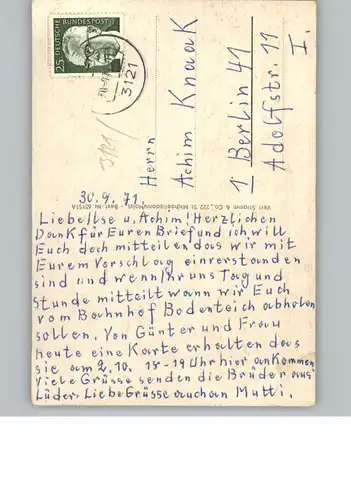 DEUTSCHE BUNDESPOST
25
3121
Herrn
Achim Knaak
1 Berlin 41
Adolfstr. 11
I.
30.9.71.
Liebe Ilse u. Achim! Herzlichen
Dank für Euren Brief und ich will
Euch doch mitteilen das wir mit
Eurem Vorschlag einverstanden
sind und wenn Ihr uns Tag und
Stunde mitteilt wann wir Euch
vom Bahnhof Bodenteich abholen
sollen. Von Günter und Frau
heute eine Karte erhalten das
sie am 2.10. 18-19 Uhr hier ankommen
Viele Grüsse senden die Brüder aus
Lüder. Liebe Grüsse auch an Mutti.